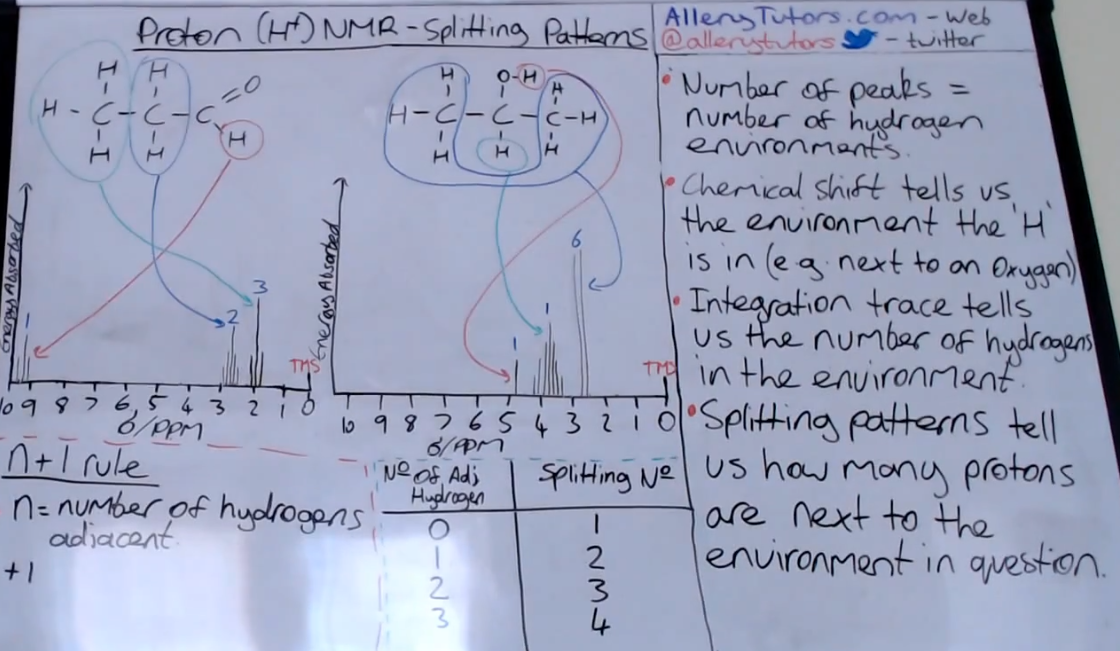 Proton (H⁺) NMR - Splitting Patterns
AlleryTutors.com - Web
@allerytutors - twitter
H H
H - C - C - C = O
H H H
O-H
H H
H - C - C - C - H
H H H
Energy Absorbed
1 2 3
TMS
10 9 8 7 6 5 4 3 2 1 0
δ/PPM
Energy Absorbed
1 1 6
TMS
10 9 8 7 6 5 4 3 2 1 0
δ/PPM
n+1 rule
n = number of hydrogens
adjacent.
+1
Nº Of Adj Splitting Nº
Hydrogen
0 1
1 2
2 3
3 4
• Number of peaks =
number of hydrogen
environments.
• Chemical shift tells us
the environment the 'H'
is in (e.g. next to an Oxygen)
• Integration trace tells
us the number of hydrogens
in the environment.
• Splitting patterns tell
us how many protons
are next to the
environment in question.